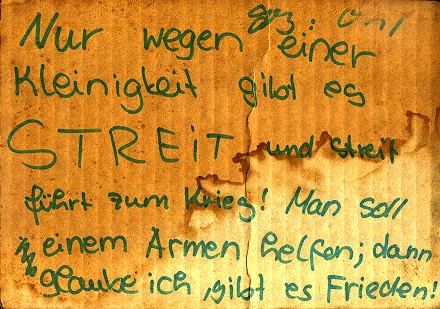 Nur wegen einer
Kleinigkeit gibt es
STREiT und streit
führt zum Krieg! Man soll
einem Armen helfen; dann
glaube ich , gibt es Frieden!